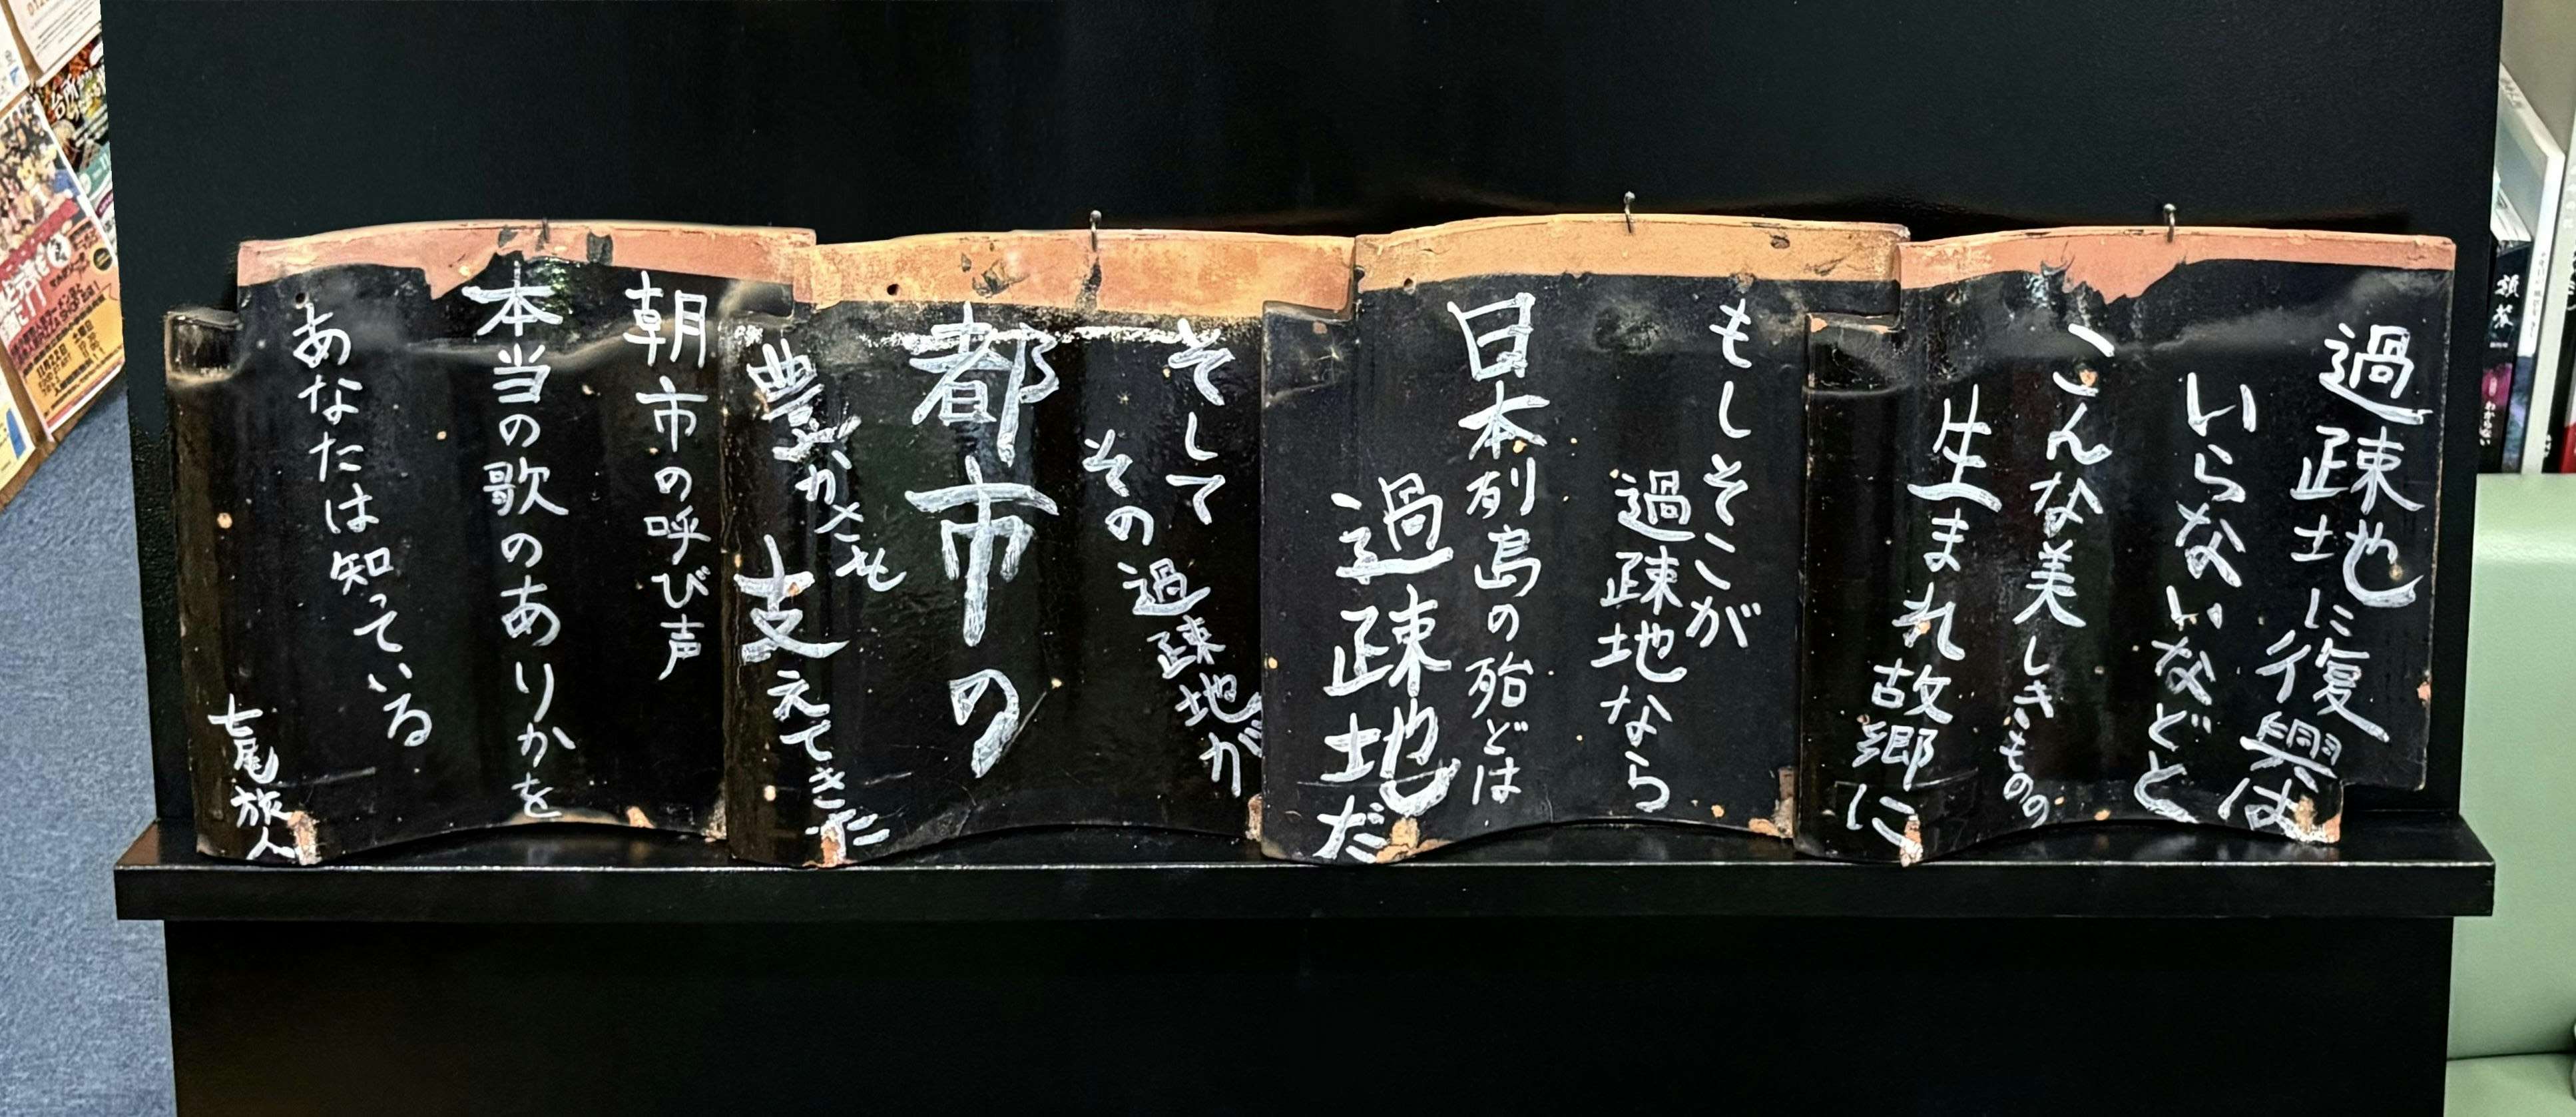 過疎地に復興は
いらないなどと
こんな美しきものの
生まれ故郷に
もしそこが
過疎地なら
日本列島の殆どは
過疎地だ
そして
その過疎地が
都市の
豊かさを
支えてきた
朝市の呼び声
本当の歌のありかを
あなたは知っている
七尾旅人